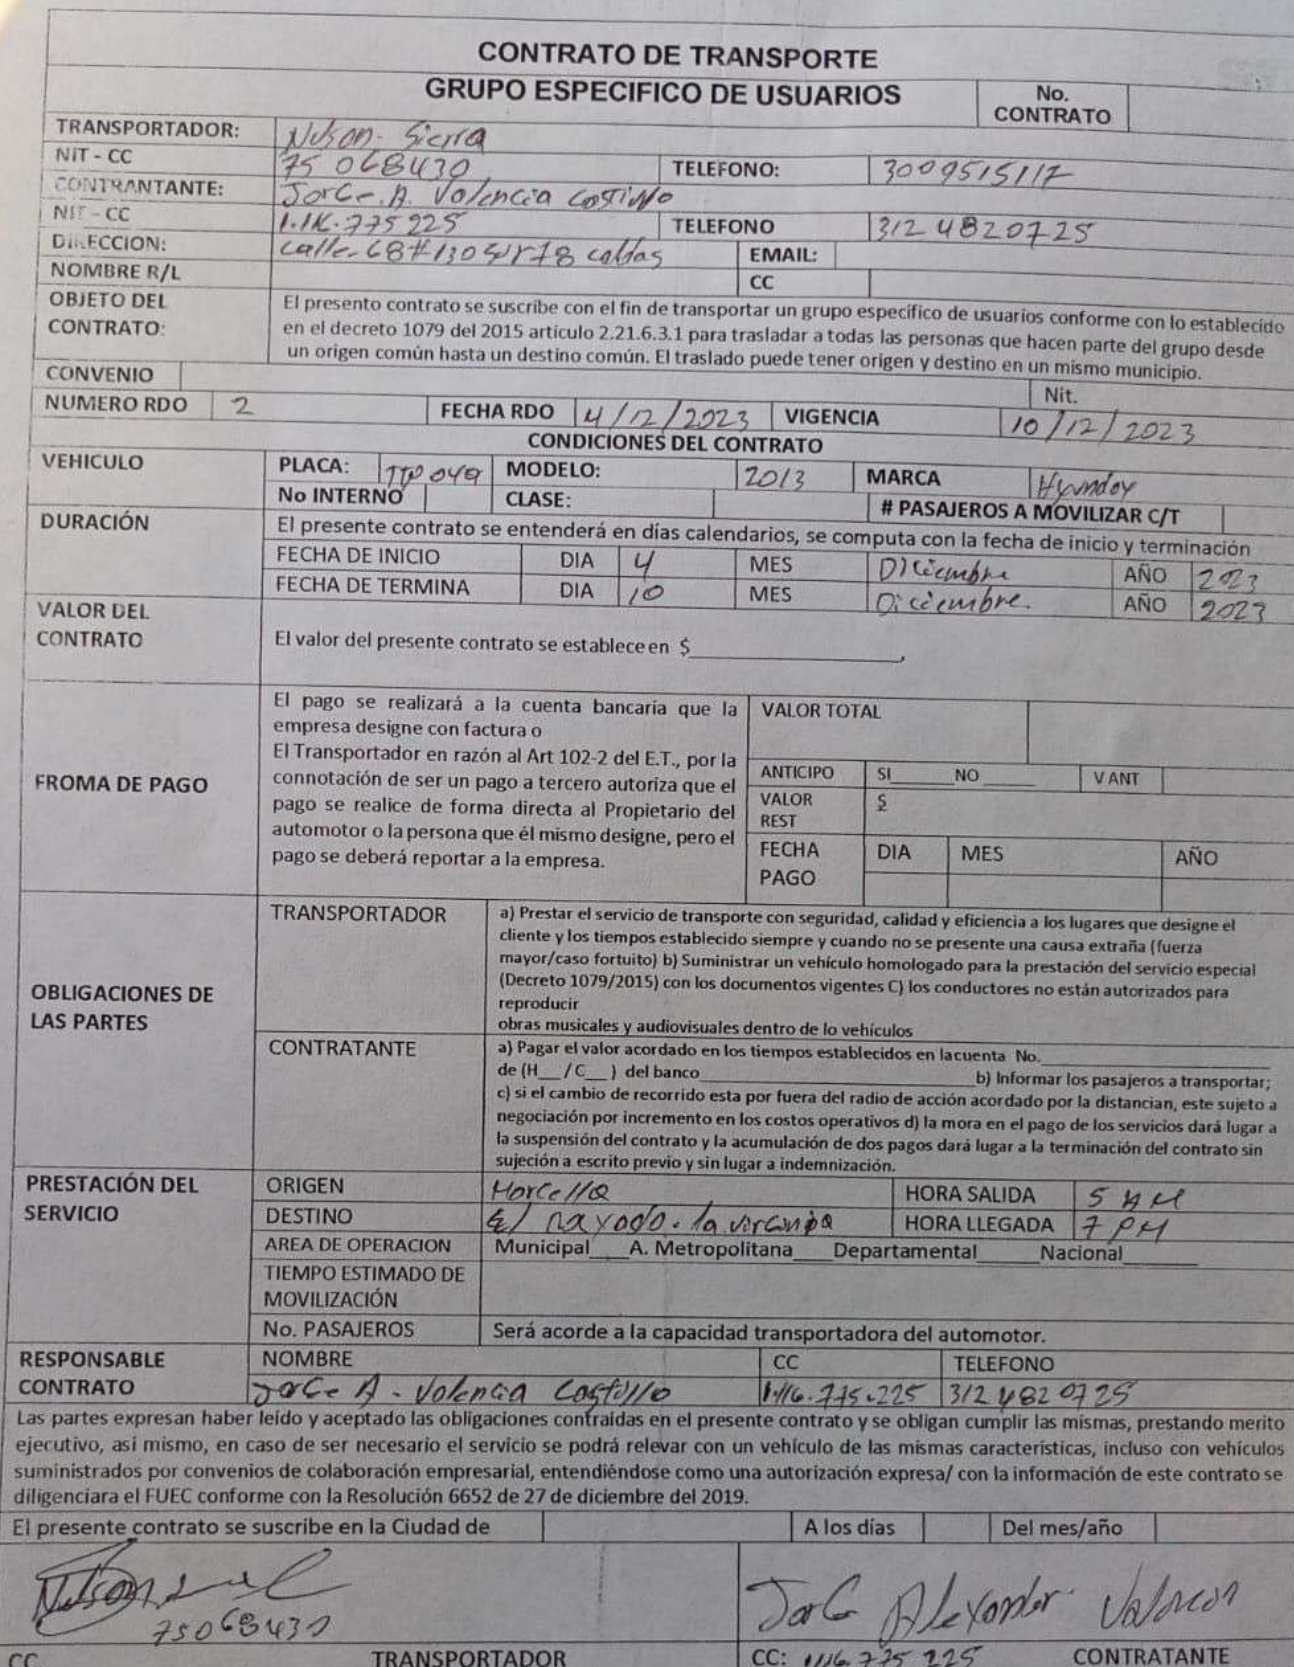 CONTRATO DE TRANSPORTE
GRUPO ESPECIFICO DE USUARIOS No. CONTRATO
TRANSPORTADOR: Nelson Sierra
NIT - CC 75 068430 TELEFONO: 3009515117
CONTRANTANTE: JorGe A. Valencia Castillo
NIT - CC 775 225 TELEFONO 312 4820725
DIRECCION: calle 68# caldas EMAIL:
NOMBRE R/L CC
OBJETO DEL CONTRATO: El presento contrato se suscribe con el fin de transportar un grupo específico de usuarios conforme con lo establecido
en el decreto 1079 del 2015 artículo 2.21.6.3.1 para trasladar a todas las personas que hacen parte del grupo desde
un origen común hasta un destino común. El traslado puede tener origen y destino en un mismo municipio.
CONVENIO Nit.
NUMERO RDO 2 FECHA RDO 4/12/2023 VIGENCIA 10/12/2023
CONDICIONES DEL CONTRATO
VEHICULO PLACA: 049 MODELO: 2013 MARCA Hyunday
No INTERNO CLASE: # PASAJEROS A MOVILIZAR C/T
DURACIÓN El presente contrato se entenderá en días calendarios, se computa con la fecha de inicio y terminación
FECHA DE INICIO DIA 4 MES Diciembre AÑO 2023
FECHA DE TERMINA DIA 10 MES Diciembre. AÑO 2023
VALOR DEL CONTRATO El valor del presente contrato se establece en $____,
FROMA DE PAGO
El pago se realizará a la cuenta bancaria que la
empresa designe con factura o
El Transportador en razón al Art 102-2 del E.T., por la
connotación de ser un pago a tercero autoriza que el
pago se realice de forma directa al Propietario del
automotor o la persona que él mismo designe, pero el
pago se deberá reportar a la empresa.
VALOR TOTAL
ANTICIPO SI____ NO____ V ANT
VALOR REST $
FECHA PAGO DIA MES AÑO
OBLIGACIONES DE LAS PARTES
TRANSPORTADOR a) Prestar el servicio de transporte con seguridad, calidad y eficiencia a los lugares que designe el
cliente y los tiempos establecido siempre y cuando no se presente una causa extraña (fuerza
mayor/caso fortuito) b) Suministrar un vehículo homologado para la prestación del servicio especial
(Decreto 1079/2015) con los documentos vigentes C) los conductores no están autorizados para
reproducir
obras musicales y audiovisuales dentro de lo vehículos
CONTRATANTE a) Pagar el valor acordado en los tiempos establecidos en lacuenta No.____
de (H__ / C__ ) del banco____b) Informar los pasajeros a transportar;
c) si el cambio de recorrido esta por fuera del radio de acción acordado por la distancian, este sujeto a
negociación por incremento en los costos operativos d) la mora en el pago de los servicios dará lugar a
la suspensión del contrato y la acumulación de dos pagos dará lugar a la terminación del contrato sin
sujeción a escrito previo y sin lugar a indemnización.
PRESTACIÓN DEL SERVICIO
ORIGEN Marcella HORA SALIDA 5 AM
DESTINO El rayado. la virginia HORA LLEGADA 7 PM
AREA DE OPERACION Municipal____A. Metropolitana____Departamental____Nacional____
TIEMPO ESTIMADO DE MOVILIZACIÓN
No. PASAJEROS Será acorde a la capacidad transportadora del automotor.
RESPONSABLE CONTRATO NOMBRE CC TELEFONO
JorGe A. Valencia Castillo 1.116.775.225 312 482 0725
Las partes expresan haber leído y aceptado las obligaciones contraídas en el presente contrato y se obligan cumplir las mismas, prestando merito
ejecutivo, así mismo, en caso de ser necesario el servicio se podrá relevar con un vehículo de las mismas características, incluso con vehículos
suministrados por convenios de colaboración empresarial, entendiéndose como una autorización expresa/ con la información de este contrato se
diligenciara el FUEC conforme con la Resolución 6652 de 27 de diciembre del 2019.
El presente contrato se suscribe en la Ciudad de A los días Del mes/año
Nelson JorGe Alexander Valencia
75068430
CC TRANSPORTADOR CC: 1116.775 225 CONTRATANTE